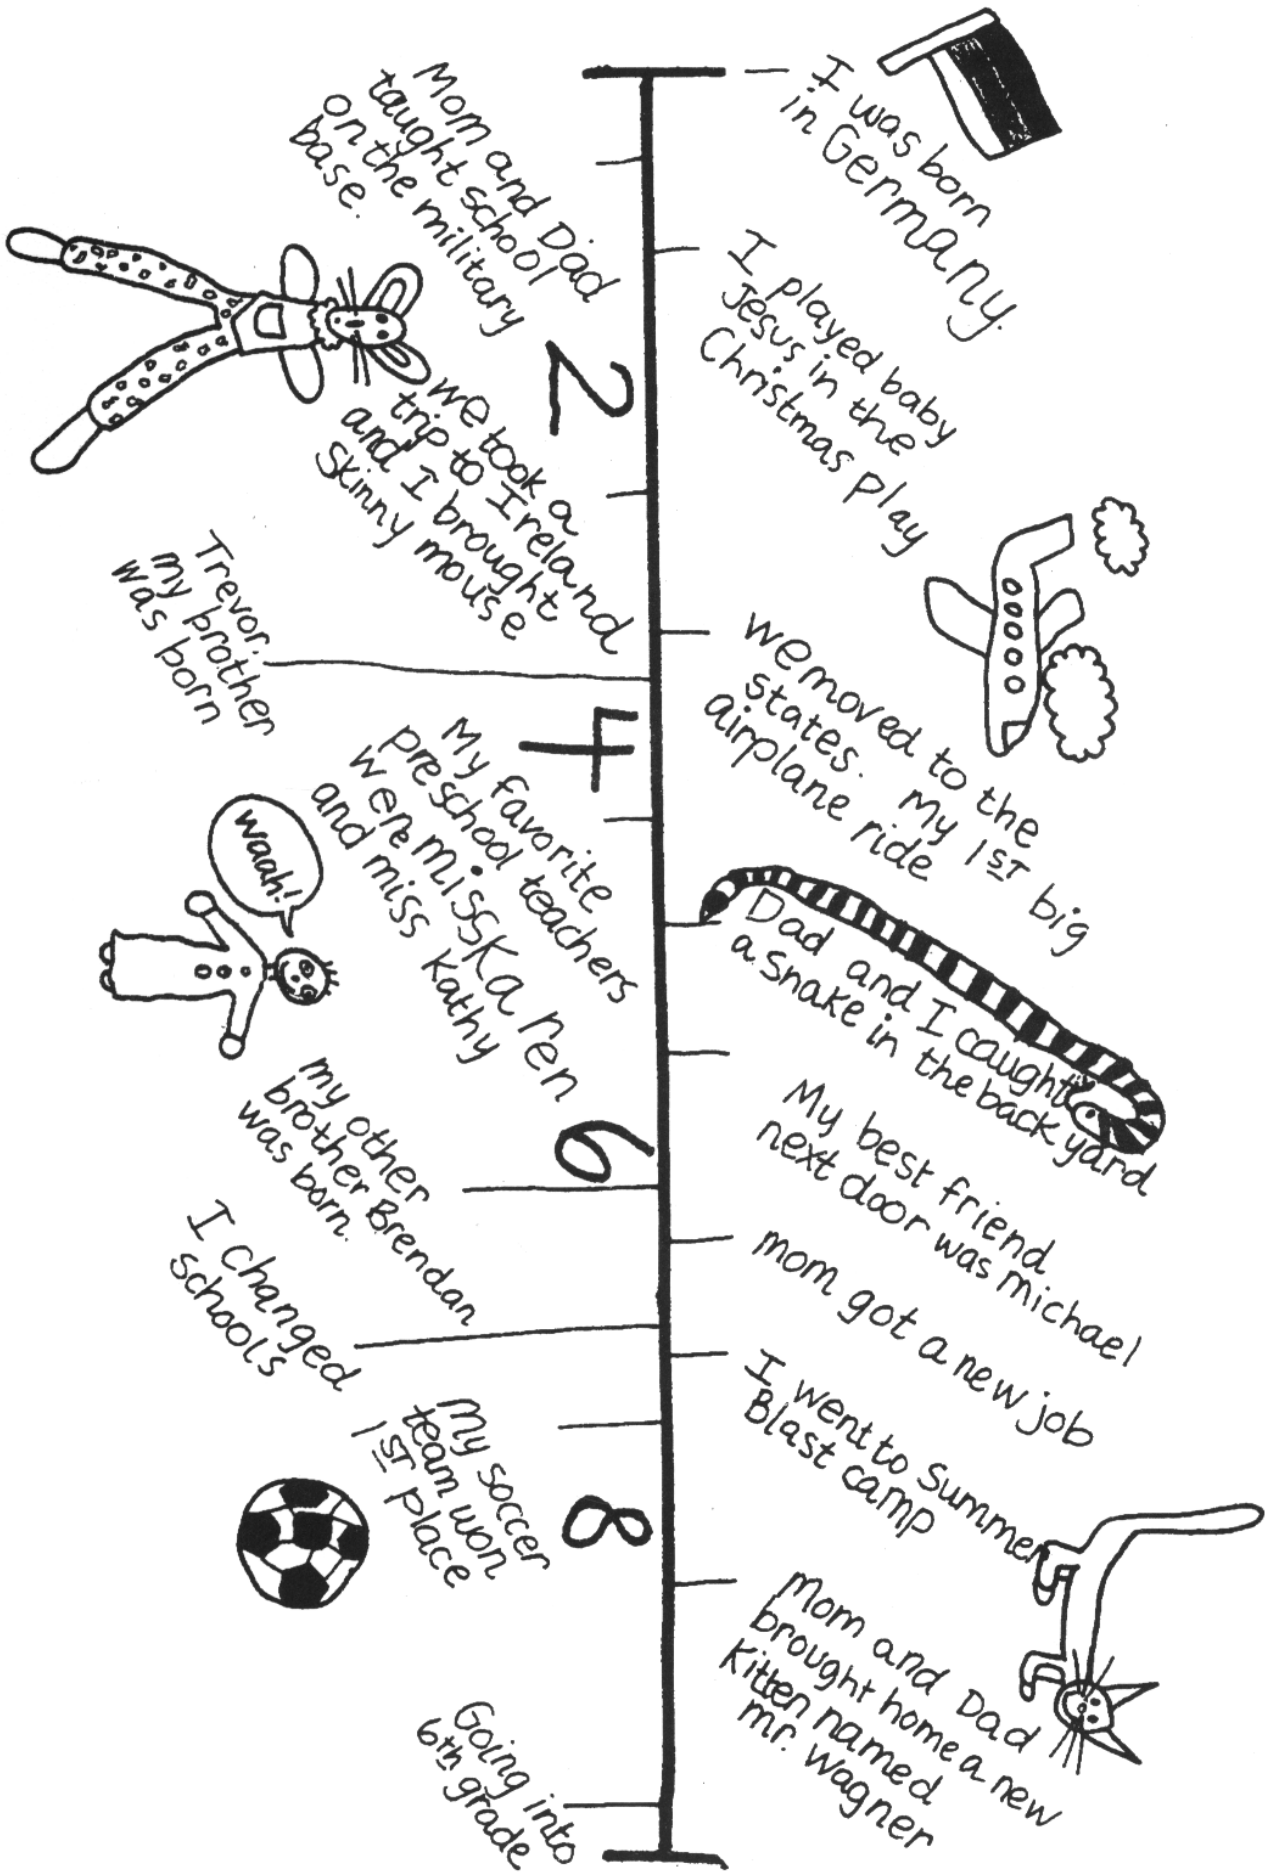 I was born
in Germany.
Mom and Dad
taught school
on the military
base.
I played baby
Jesus in the
Christmas play
2
we took a
trip to Ireland
and I brought
Skinny mouse
we moved to the
states. My 1ST big
airplane ride
Trevor.
my brother
was born
4
Dad and I caught
a snake in the back yard
My favorite
preschool teachers
were miss Karen
and miss Kathy
waah!
My best friend
next door was michael
6
my other
brother Brendan
was born.
mom got a new job
I changed
schools
I went to Summer
Blast camp
My soccer
team won
1ST place
8
Mom and Dad
brought home a new
Kitten named
mr. wagner
Going into
6th grade